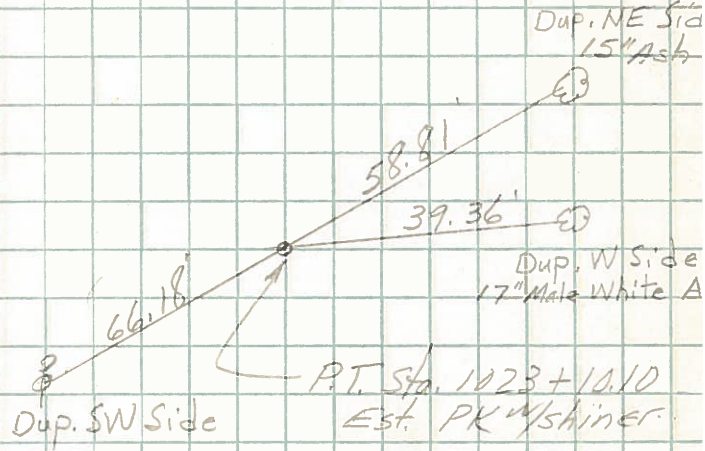 Dup. NE Sid
15" Ash
58.81'
39.36'
Dup. W Side
17" Male White A
66.18'
P.T. Sta. 1023+10.10
Est. PK w/shiner
Dup. SW Side